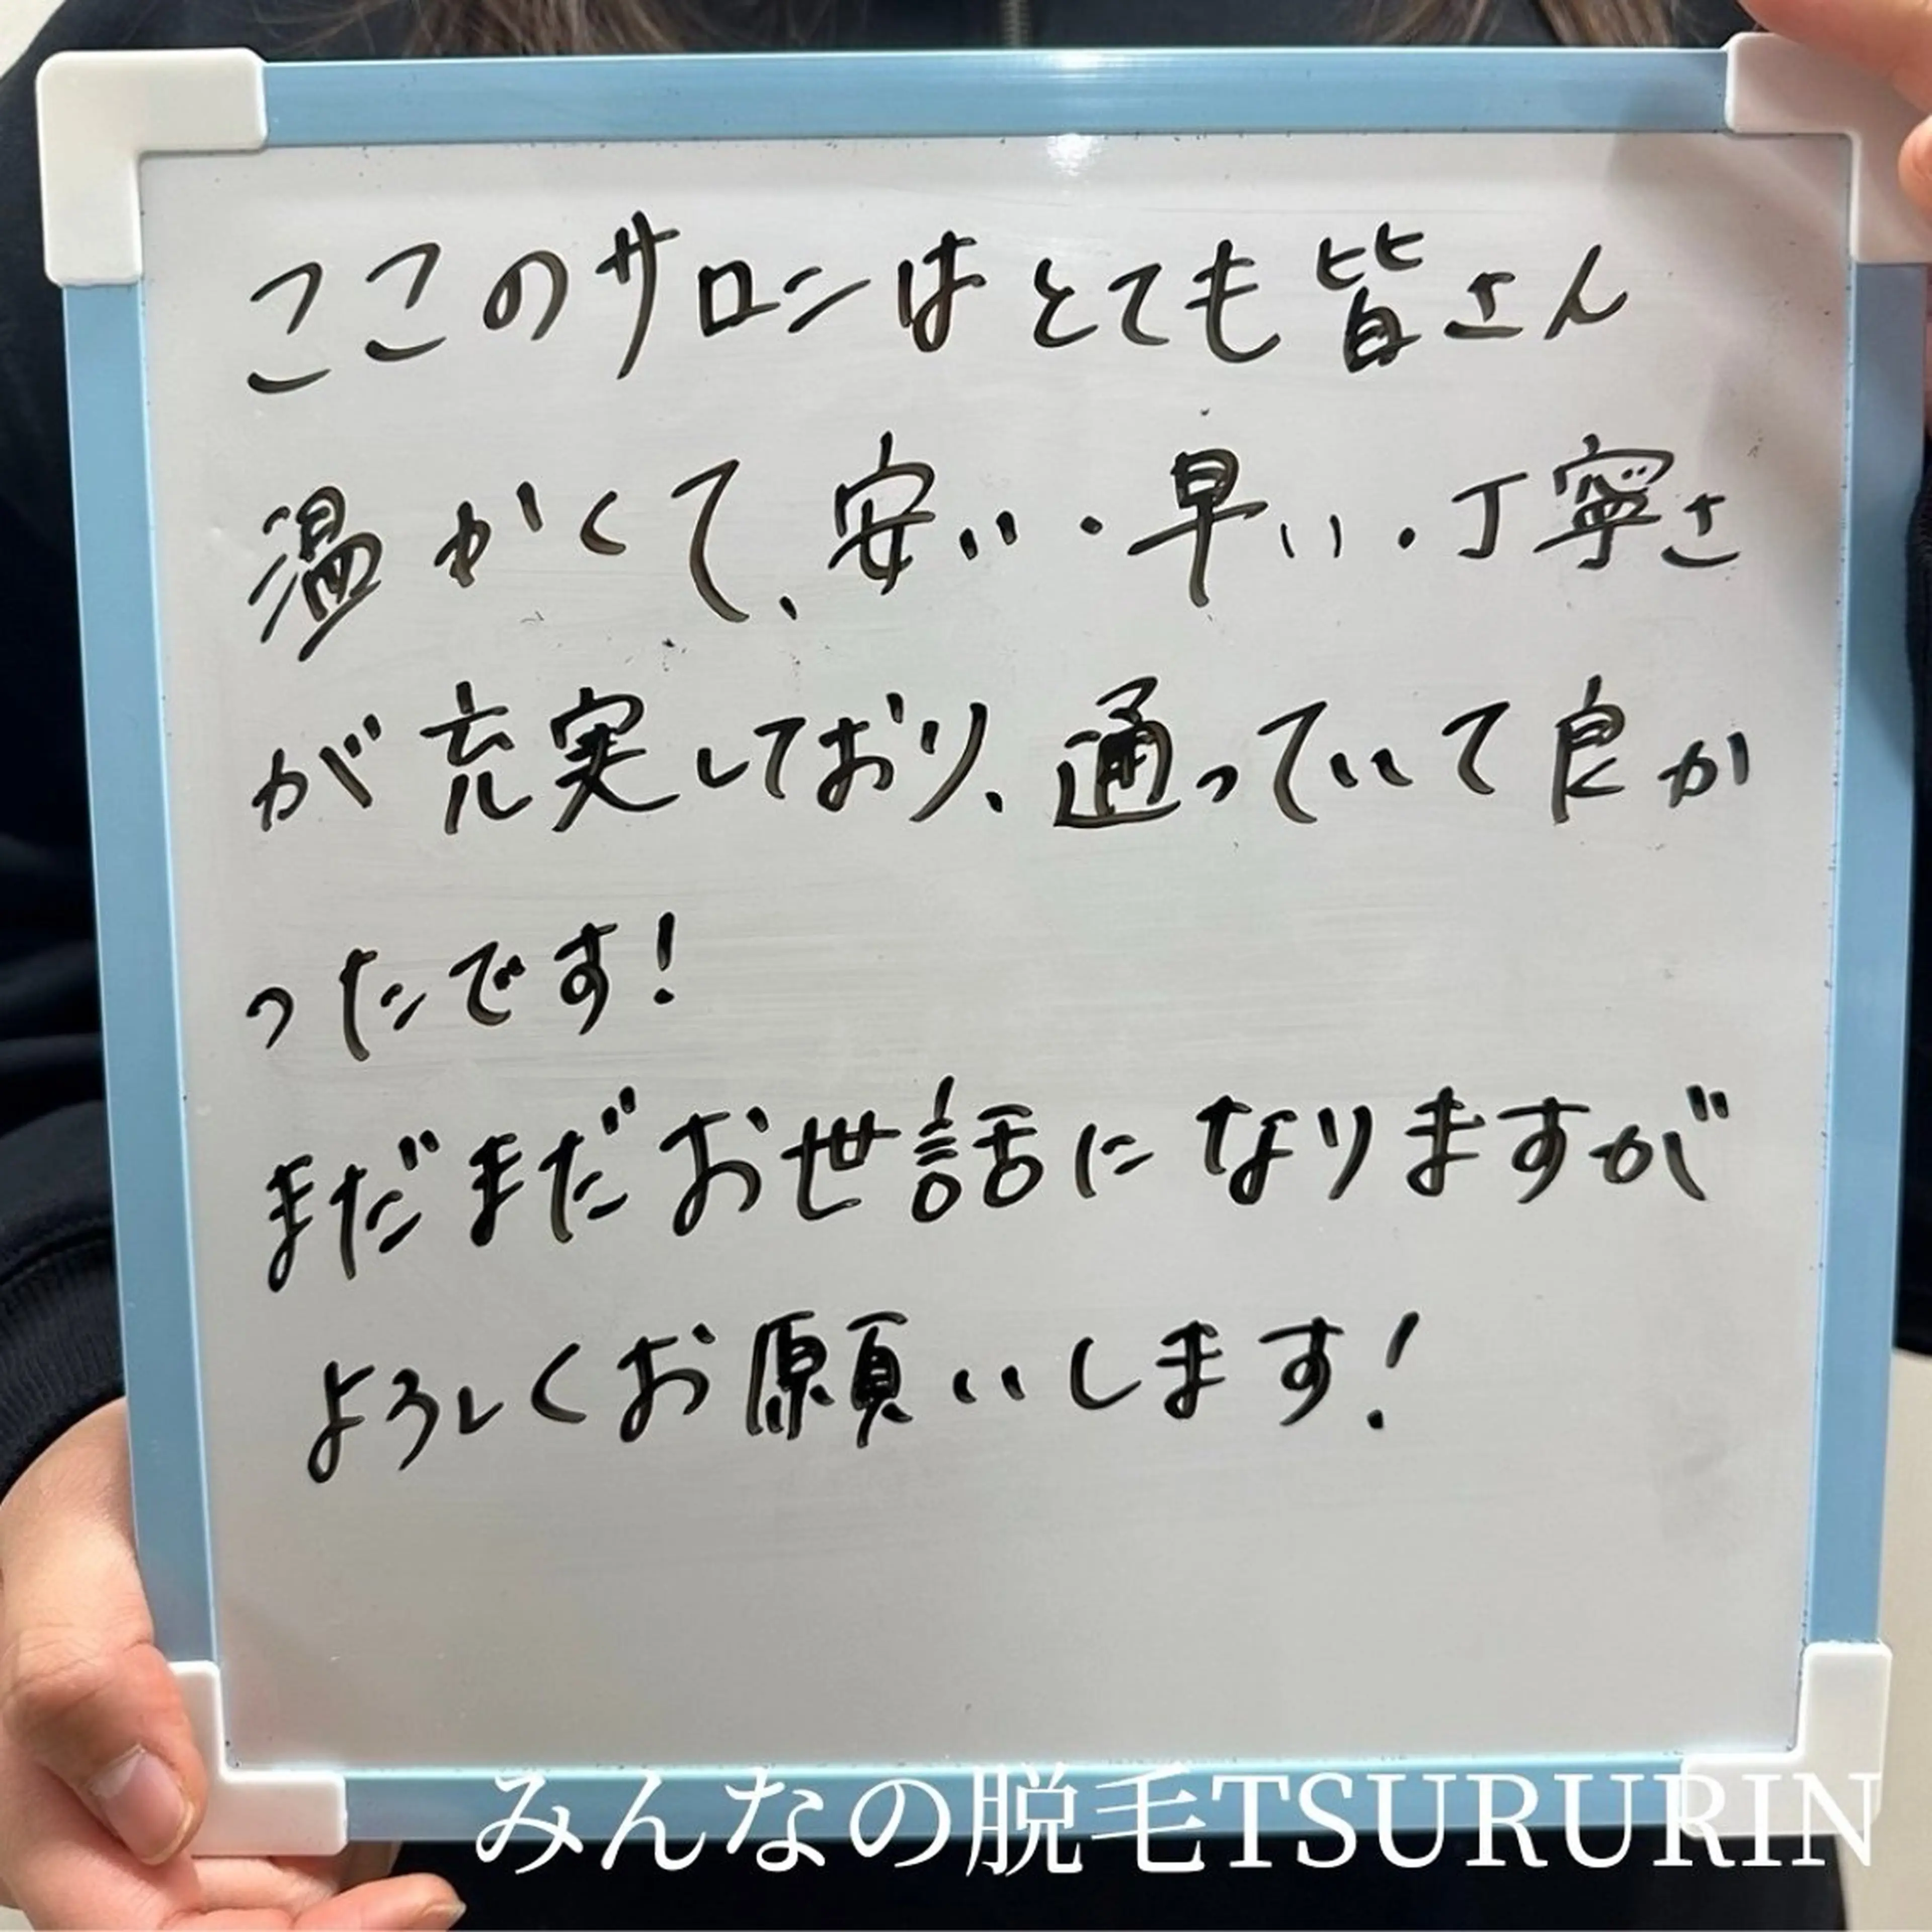 ここのサロンはとても皆さん
温かくて、安い・早い・丁寧さ
が充実しており、通っていて良か
ったです!
まだまだお世話になりますが
よろしくお願いします!
みんなの脱毛TSURURIN